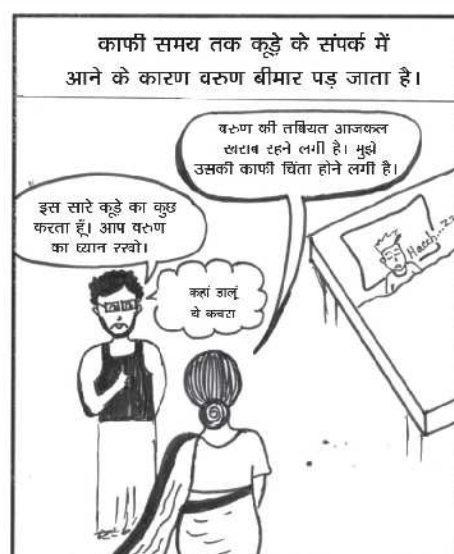 काफी समय तक कूड़े के संपर्क में
आने के कारण वरुण बीमार पड़ जाता है।
वरुण की तबियत आजकल
खराब रहने लगी है। मुझे
उसकी काफी चिंता होने लगी है।
इस सारे कूड़े का कुछ
करता हूँ। आप वरुण
का ध्यान रखो।
कहां डालूं
ये कचरा
Hacch...zz